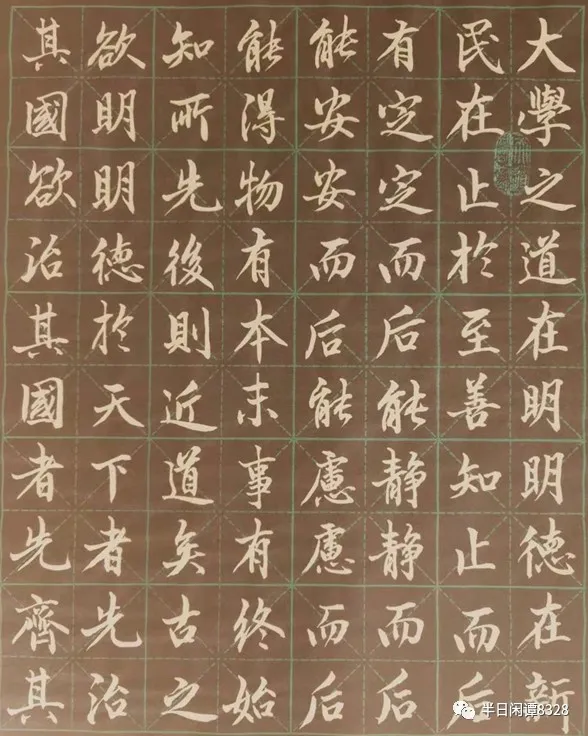 大學之道在明明德在新
民在止於至善知止而后
有定定而后能静静而后
能安安而后能慮慮而后
能得物有本末事有終始
知所先後則近道矣古之
欲明明德於天下者先治
其國欲治其國者先齊其
半日闲谭8328